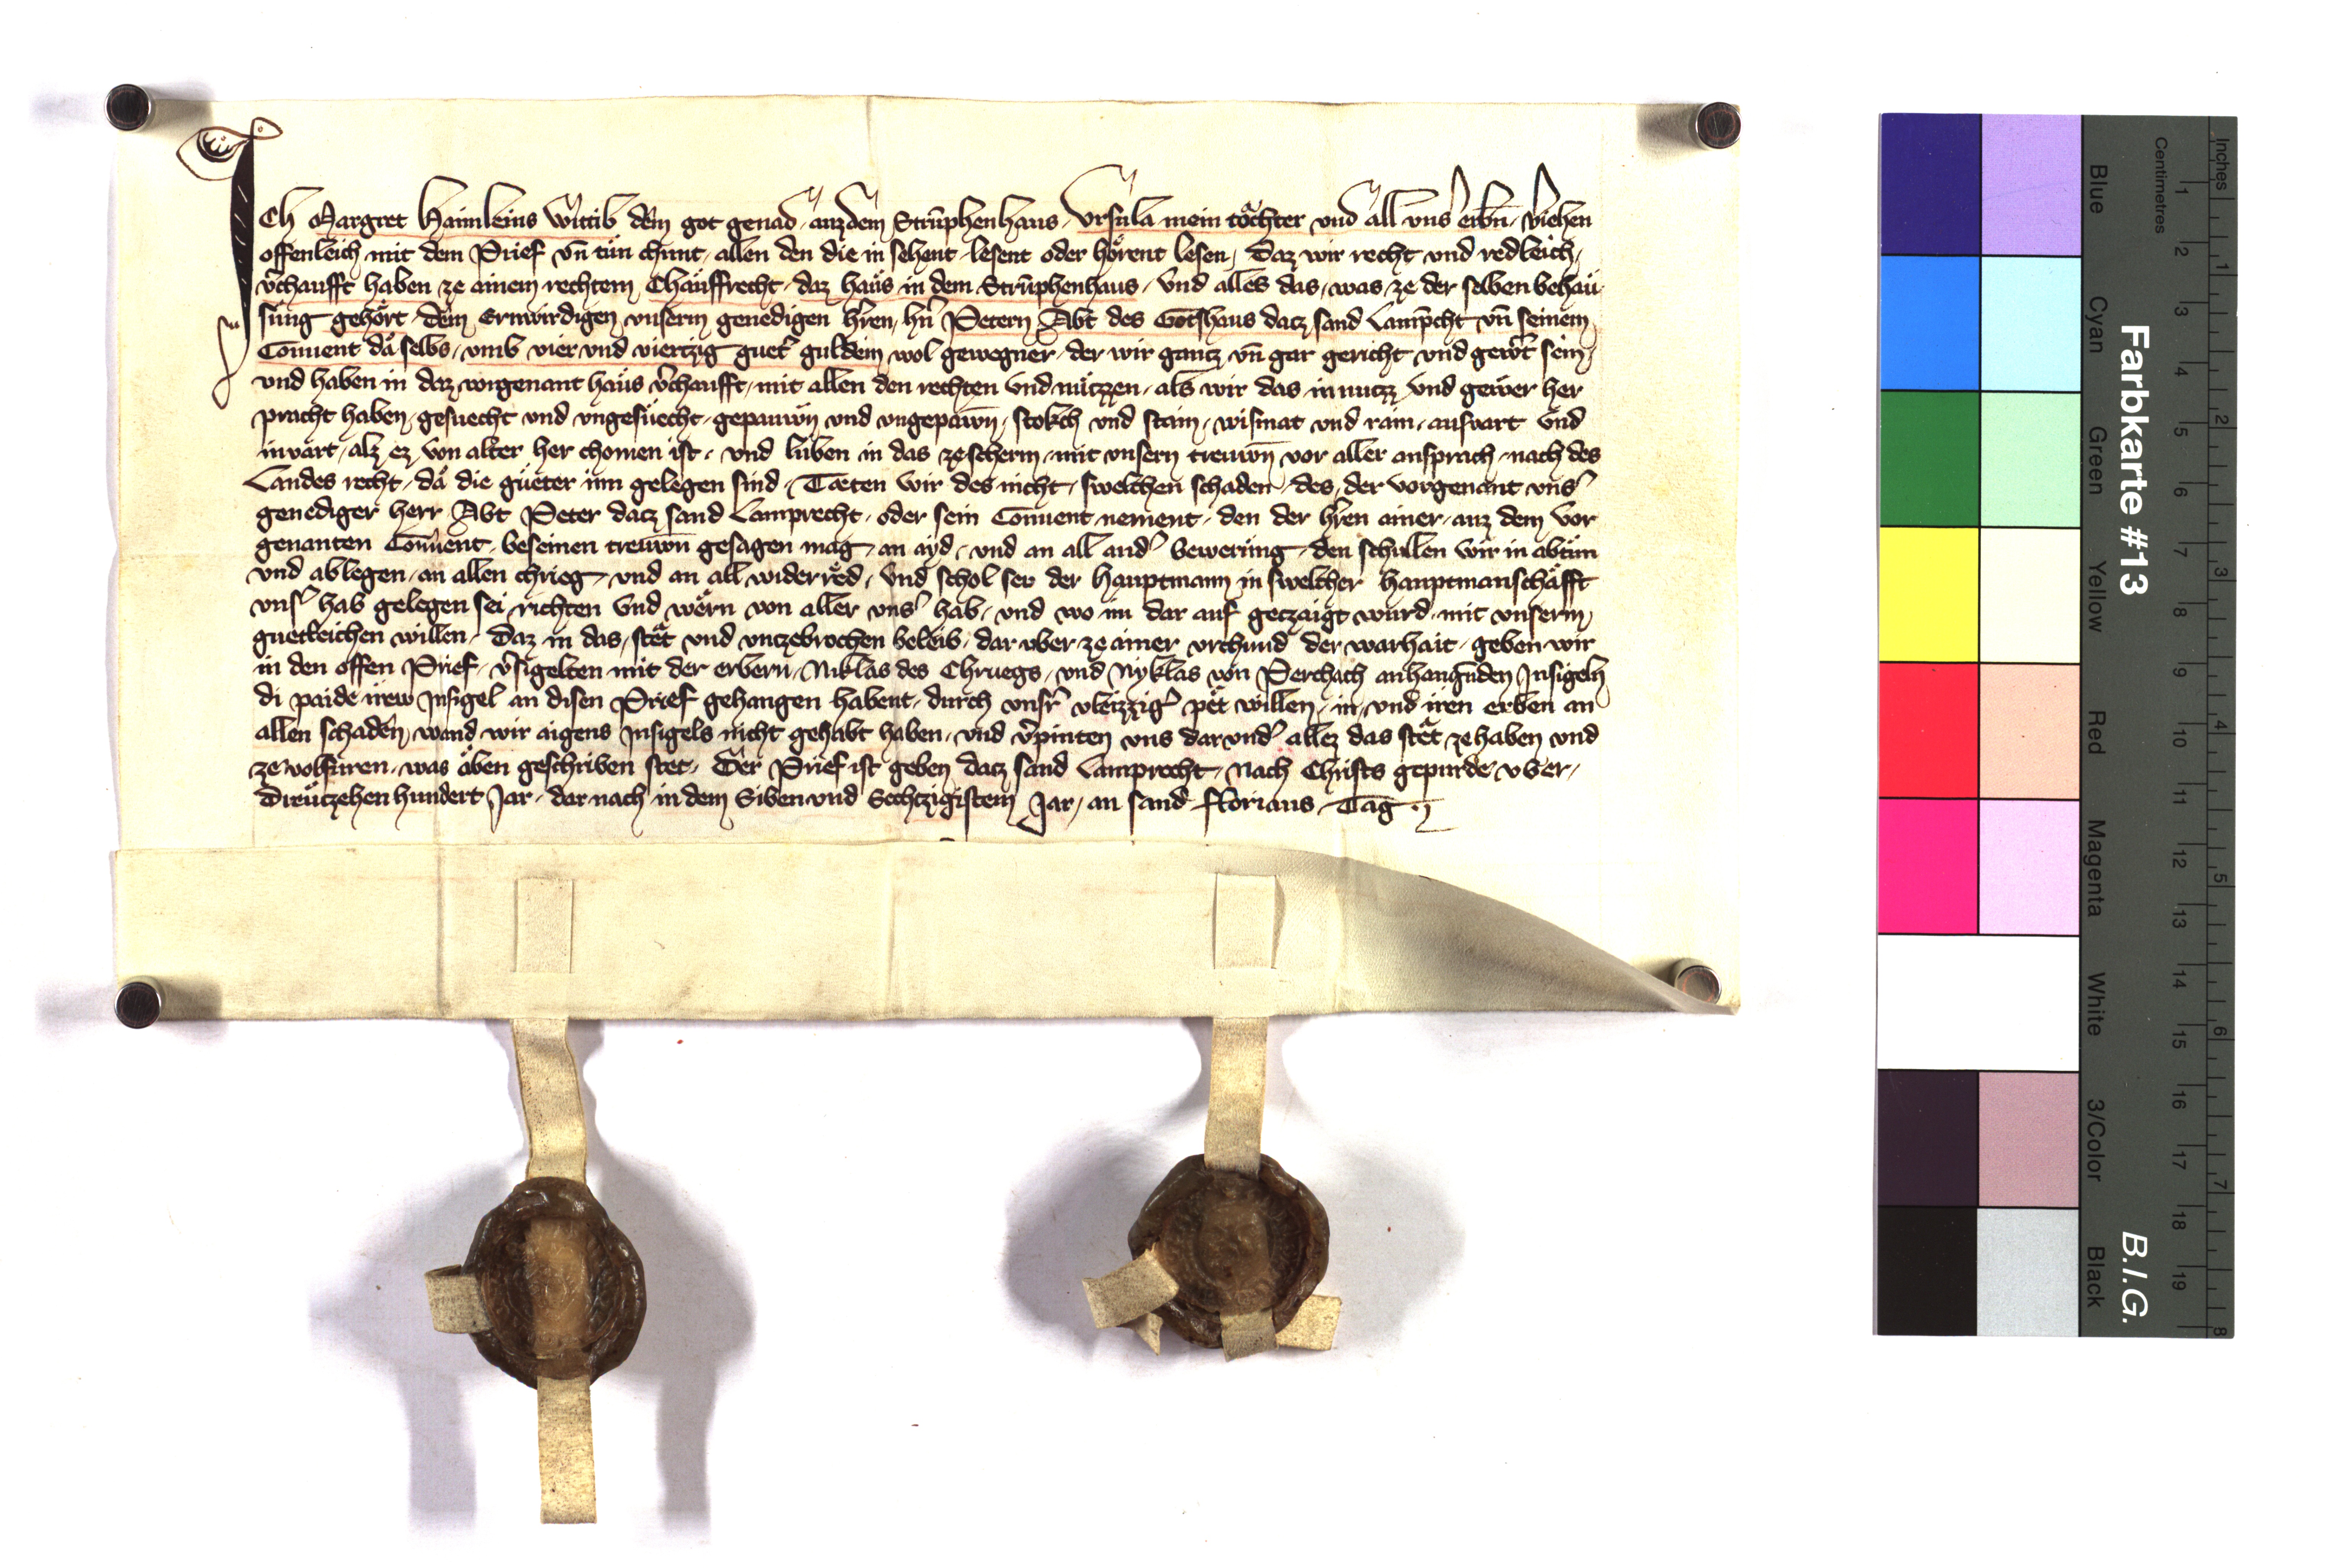 Ich Margret Haimleins Wittib dem got genad, auz dem Strůphenhaus, Vrsula mein tǒchter und all vns erbn̄, v̓iehen
offenleich mit dem Prief vn̄ tůn chunt, allen den die in sehent, lesent oder hǒrent lesen, Daz wir recht und redleich,
v̓chaufft haben ze ainem rechtem Chǎuffrecht, daz haůs in dem Strůphenhaus, Und alles das, was, ze der selben behaů
sung gehǒrt, dem Ernwirdigen vnserm genedigen hr̄en, hn̄ Petern Abt des Gotshaus dacz sand Lamp̄cht vn̄ seinem
Conuent dǎ selbs, vmb vier und viertzig guet̓ guldein wol gewegner, der wir gancz vn̄ gar gericht und gewt̓ sein,
und haben in daz vorgenant haůs v̓chaufft, mit allen den rechten Und nůtzzen, als wir das in nutzz und gewer her
pracht haben, gesuecht und vngesůecht, gepauwn̄ und vngepawn̄, stokch und stain, wismat und rain, ausuart Und
inuart, alz ez von alter her chomen ist, und lůben in das ze scherm, mit vnsern trewn̄ vor aller ansprach, nach des
Landes recht, dǎ die gůeter inn gelegen sind, Tæten wir des nicht, swelchen schaden, des, der vorgenant vns̓
genediger herr Abt Peter dacz sand Lamprecht, oder sein Conuent nement, den der hr̄en ainer, auz dem Vor
genanten Conuent, beseinen trewn̄ gesagen mag, an ayd, und an all and̓ bewerůng, den schullen wir in abtůn
und ablegen, an allen chrieg, und an all widerrěd, Und schol seu der Hauptmann in swelcher hauptmanschǎfft
vns̓ hab gelegen sei richten Und wěrn von aller vns̓ hab, und wo im dar auf geczaigt wurd, mit vnserm,
guetleichen willen, Daz in das, stět und vnczebrochen beleib, dar vber, ze ainer vrchund der warhait, geben wir
in den offen Prief, v̓sigelten mit der erbern, Niklas des Chruegs, und Nyklas von Perchach anhangūden Insigeln
di paide irew Insigel an disen Prief gehangen habent, durch vnsr̓ vleizzig̓ pět willen, in, und iren erben an
allen schaden, wand wir aigens Insigels nicht gehabt haben, und v̓pinten vns darund̓ allez das stět ze haben und
ze volfůren, was ǒben geschriben stet, Der Prief ist geben dacz sand Lamprecht, Nach Christs gepurde vber,
Dreůczehen hundert Jar, dar nach in dem Siben und Sechtzigistem Jar, an sand Florians Tag
Farbkarte #13
B.I.G.
Blue
Cyan
Green
Yellow
Red
Magenta
White
3/Color
Black
Centimetres
1 2 3 4 5 6 7 8 9 10 11 12 13 14 15 16 17 18 19
Inches
1 2 3 4 5 6 7 8